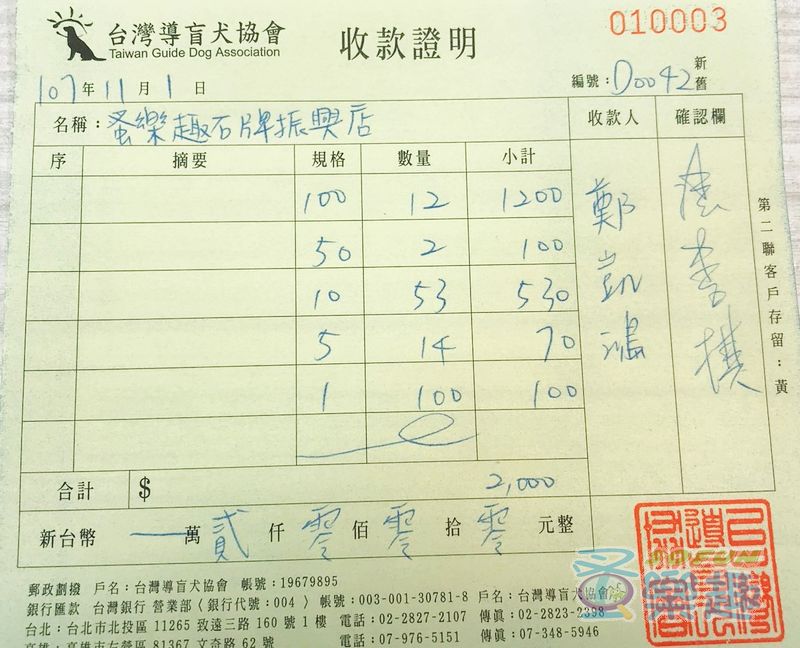 010003
台灣導盲犬協會
Taiwan Guide Dog Association
收款證明
107年11月1日
編號：D0042 新舊
名稱：蚤樂趣石牌振興店
收款人 確認欄
序 摘要 規格 數量 小計
100 12 1200
50 2 100
10 53 530
5 14 70
1 100 100
鄭凱鴻
第二聯客戶存留：黃
合計 $ 2,000
新台幣 一萬貳仟零佰零拾零元整
郵政劃撥 戶名：台灣導盲犬協會 帳號：19679895
銀行匯款 台灣銀行 營業部〈銀行代號：004〉帳號：003-001-30781-8 戶名：台灣導盲犬協會
台北：台北市北投區 11265 致遠三路 160 號 1 樓 電話：02-2827-2107 傳真：02-2823-2398
高雄：高雄市左營區 81367 文奇路 62 號 電話：07-976-5151 傳真：07-348-5946